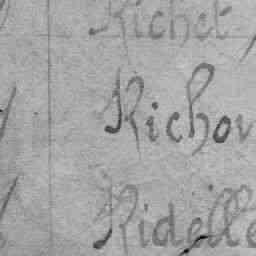 Richet
Richou
Ridelle